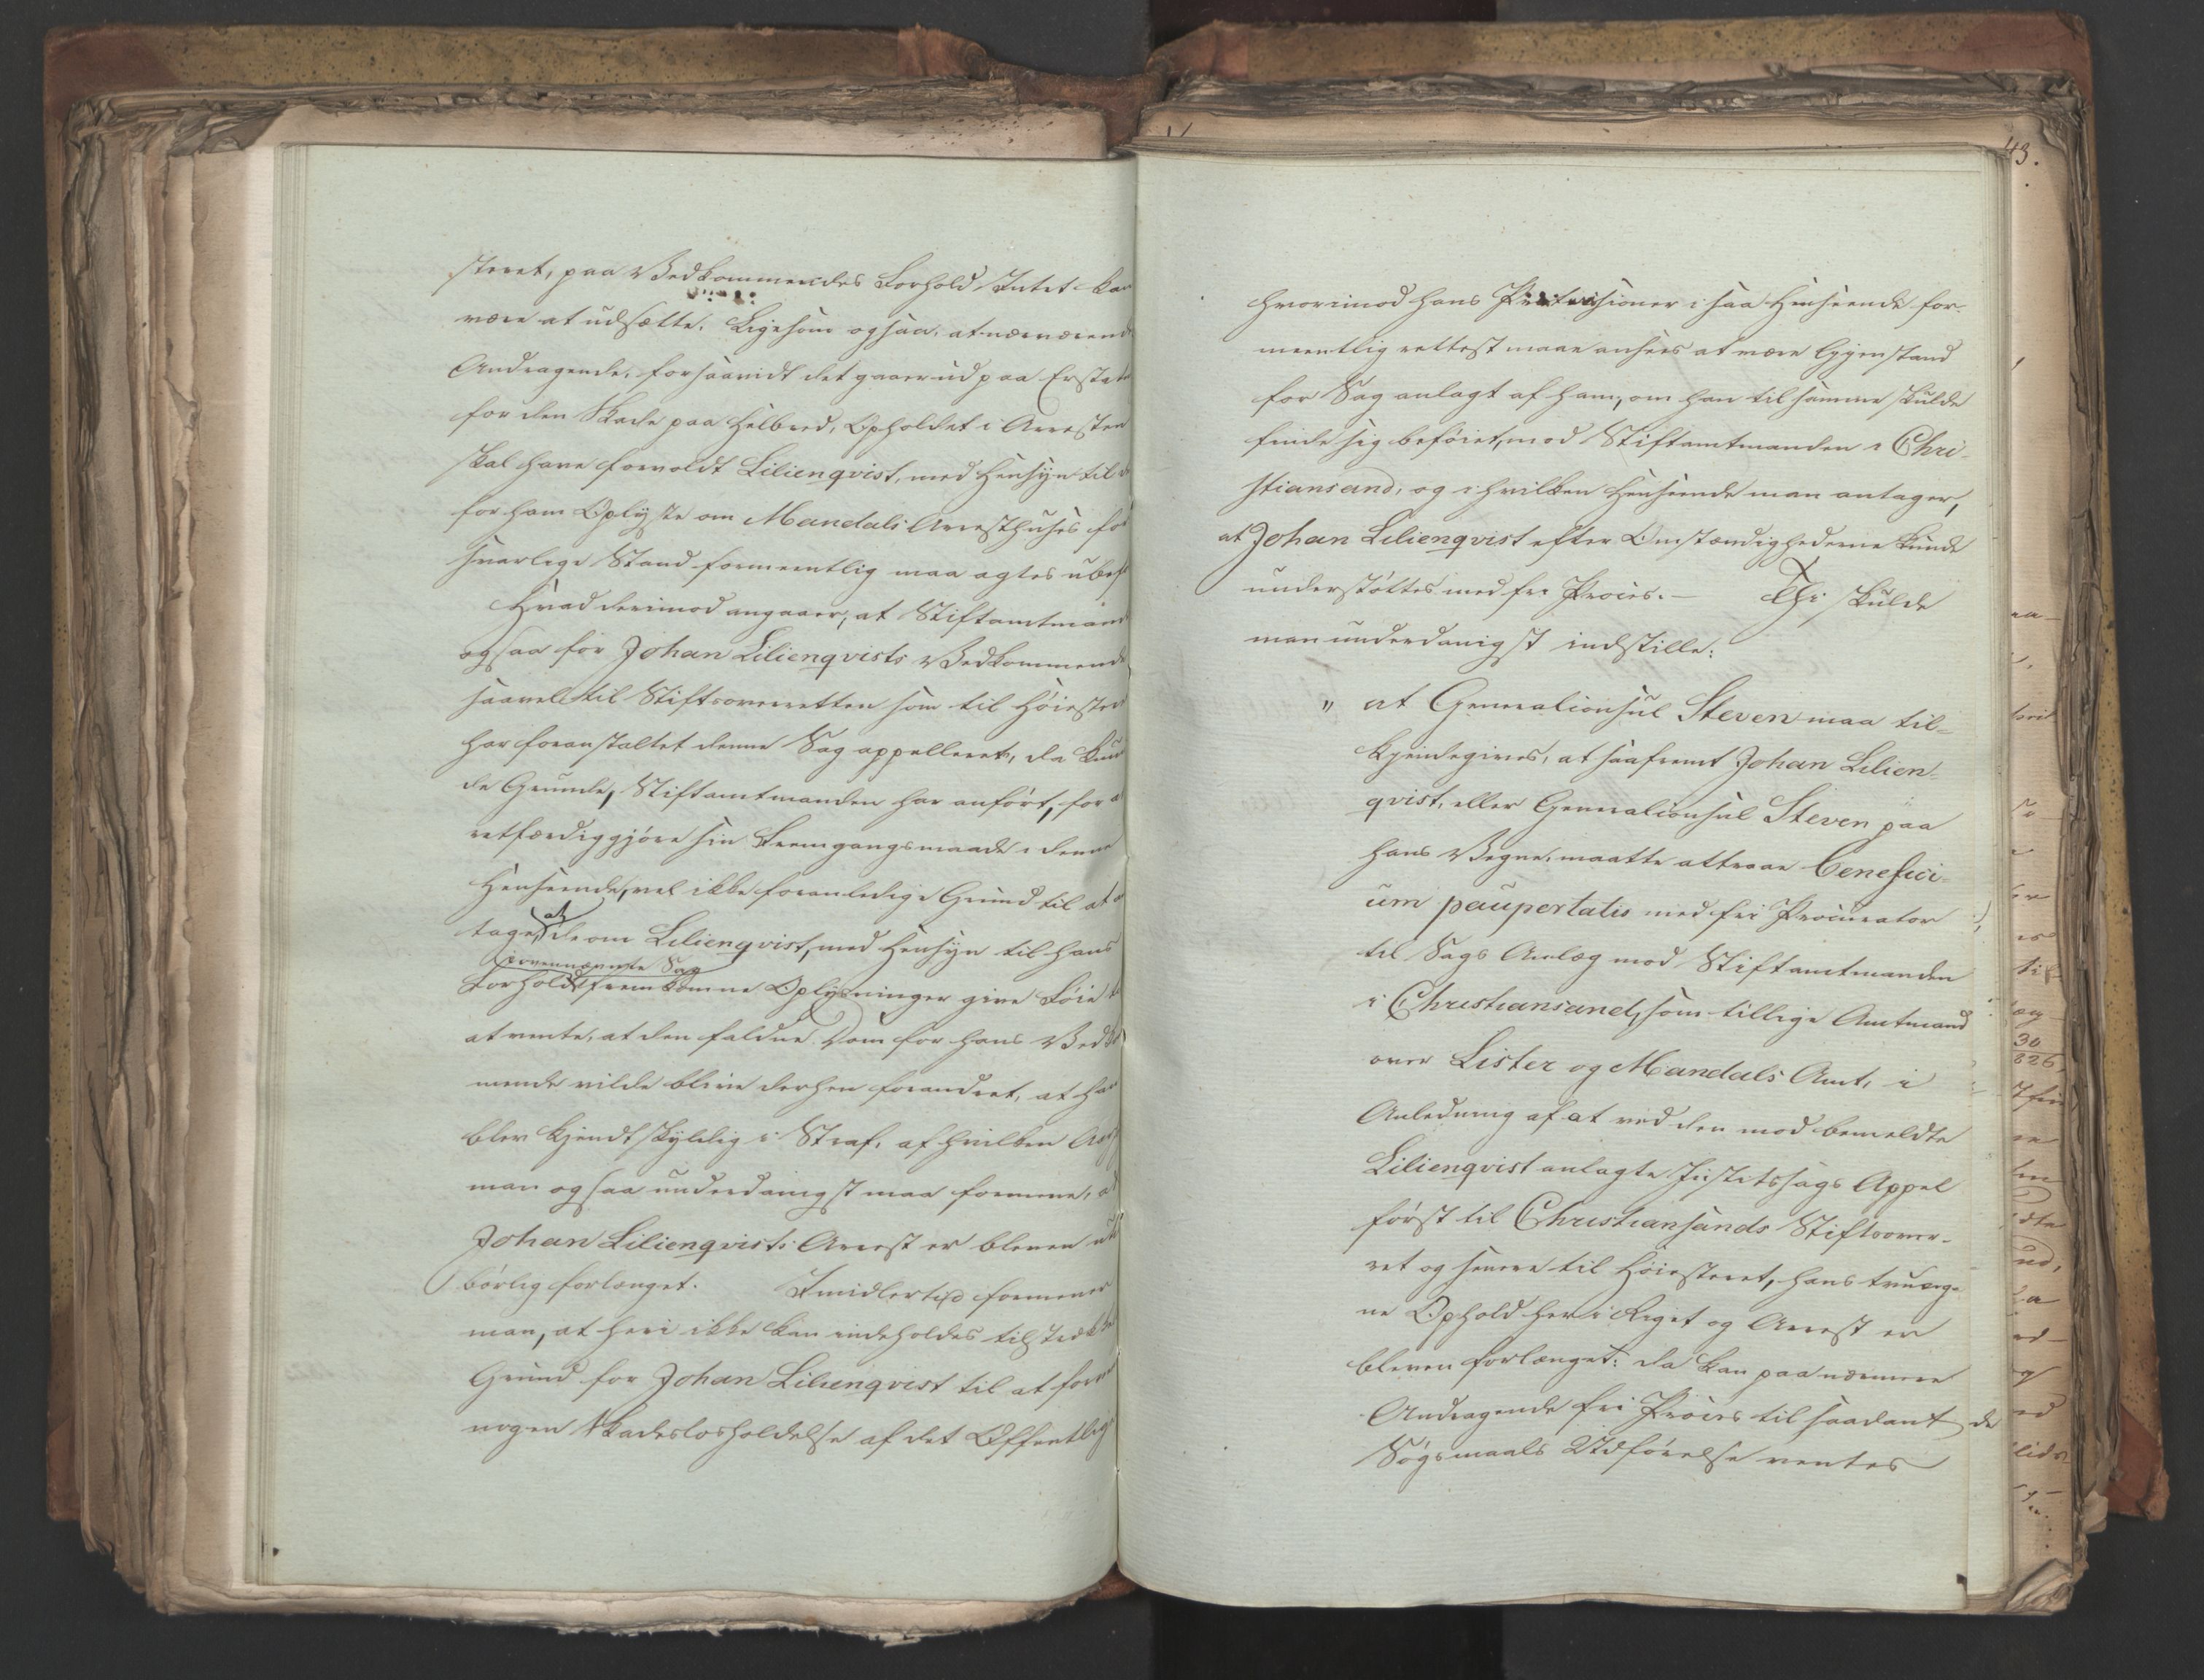 steret, paa Vedkommendes Forhold Intet kan
være at udsætte. Ligesom ogsaa, at nærværend
Andragende, forsaavidt det gaaer ud paa Erstat
for den Skade paa Helbred, Opholdet i Arresten
skal have forvoldt Lilienqvist, med Hensyn til
for ham Oplyste om Mandals Arresthuses for
svarlige Stand formeentlig maa agtes ubef
Hvad derimod angaaer, at Stiftamtmand
ogsaa for Johan Lilienqvists Vedkommende
saavel til Stiftsoverretten som til Høiester
har foranstaltet denne Sag appelleret, da kun
de Grunde, Stiftamtmanden har anført, for a
retfærdiggjøre sin Fremgangsmaade i denne
Henseende, vel ikke foranledige Grund til at a
tage, at de om Lilienqvist, med Hensyn til hans
Forhold i ovennævnte Sag fremkomne Oplysninger give Føie
at vente, at den faldne Dom for hans Vedko
mende vilde blive derhen forandret, at han
blev kjendt skyldig i Straf, af hvilken Aarsag
man ogsaa underdanigst maa formene, at
Johan Lilienqvists Arrest er bleven uti
børlig forlænget. Imidlertid formener
man, at heri ikke kan indeholdes tilstrække
Grund for Johan Lilienqvist til at for
nogen Skadesløsholdelse af det Offentlige
43.
hvorimod hans Prætensioner i saa Henseende for-
meentlig rettest maae ansees at være Gjenstand
for Sag anlagt af ham, om han til samme skulde
finde sig beføiet, mod Stiftamtmanden i Chri-
stiansand, og i hvilken Henseende man antager,
at Johan Lilienqvist efter Omstændighederne kunde
understøttes med fri Proces. — Thi skulde
man underdanigst indstille:
" at Generalconsul Steven maa til-
kjendegives, at saafremt Johan Lilien-
qvist, eller Generalconsul Steven paa
hans Vegne, maatte attraae benefici-
um paupertatis med fri Procurator
til Sags Anlæg mod Stiftamtmanden
i Christiansand, som tillige Amtmand
over Lister og Mandals Amt, i
Anledning af at ved den mod bemeldte
Lilienqvist anlagte Justitssags Appel
først til Christiansands Stiftsover-
ret og senere til Høiesteret, hans tvung-
ne Ophold her i Riget og Arrest er
bleven forlænget: da kan paa nærmere
Andragende fri Proces til saadant
Søgsmaals Udførelse ventes